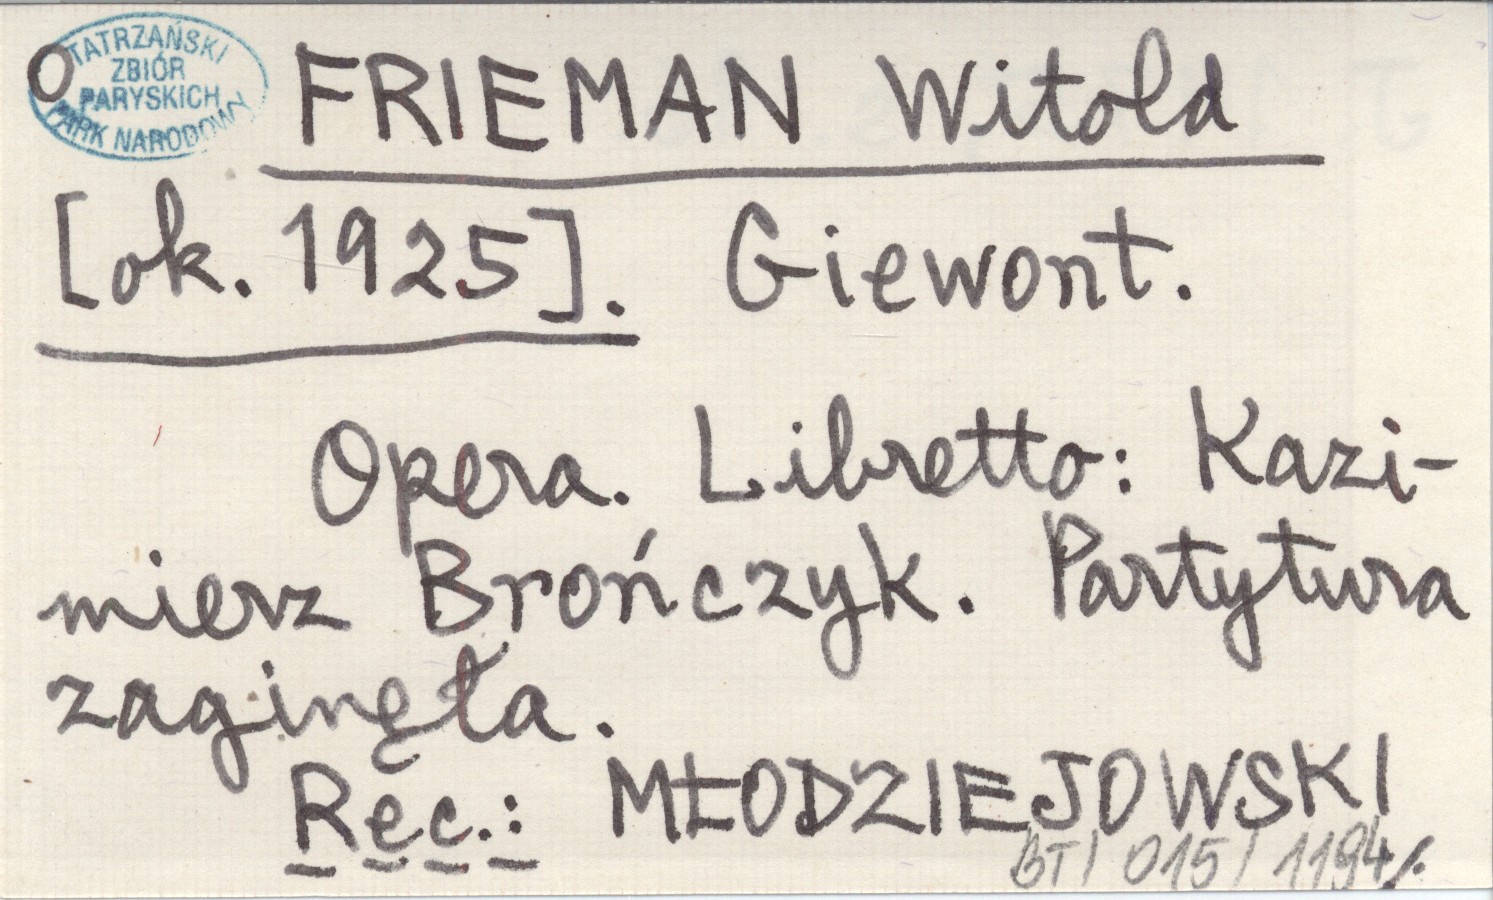 TATRZAŃSKI
ZBIÓR
PARYSKICH
PARK NARODOWY
O FRIEMAN Witold
[ok. 1925]. Giewont.
Opera. Libretto: Kazi-
mierz Brończyk. Partytura
zaginęła.
Rec.: MŁODZIEJOWSKI
BT/015/1194/.